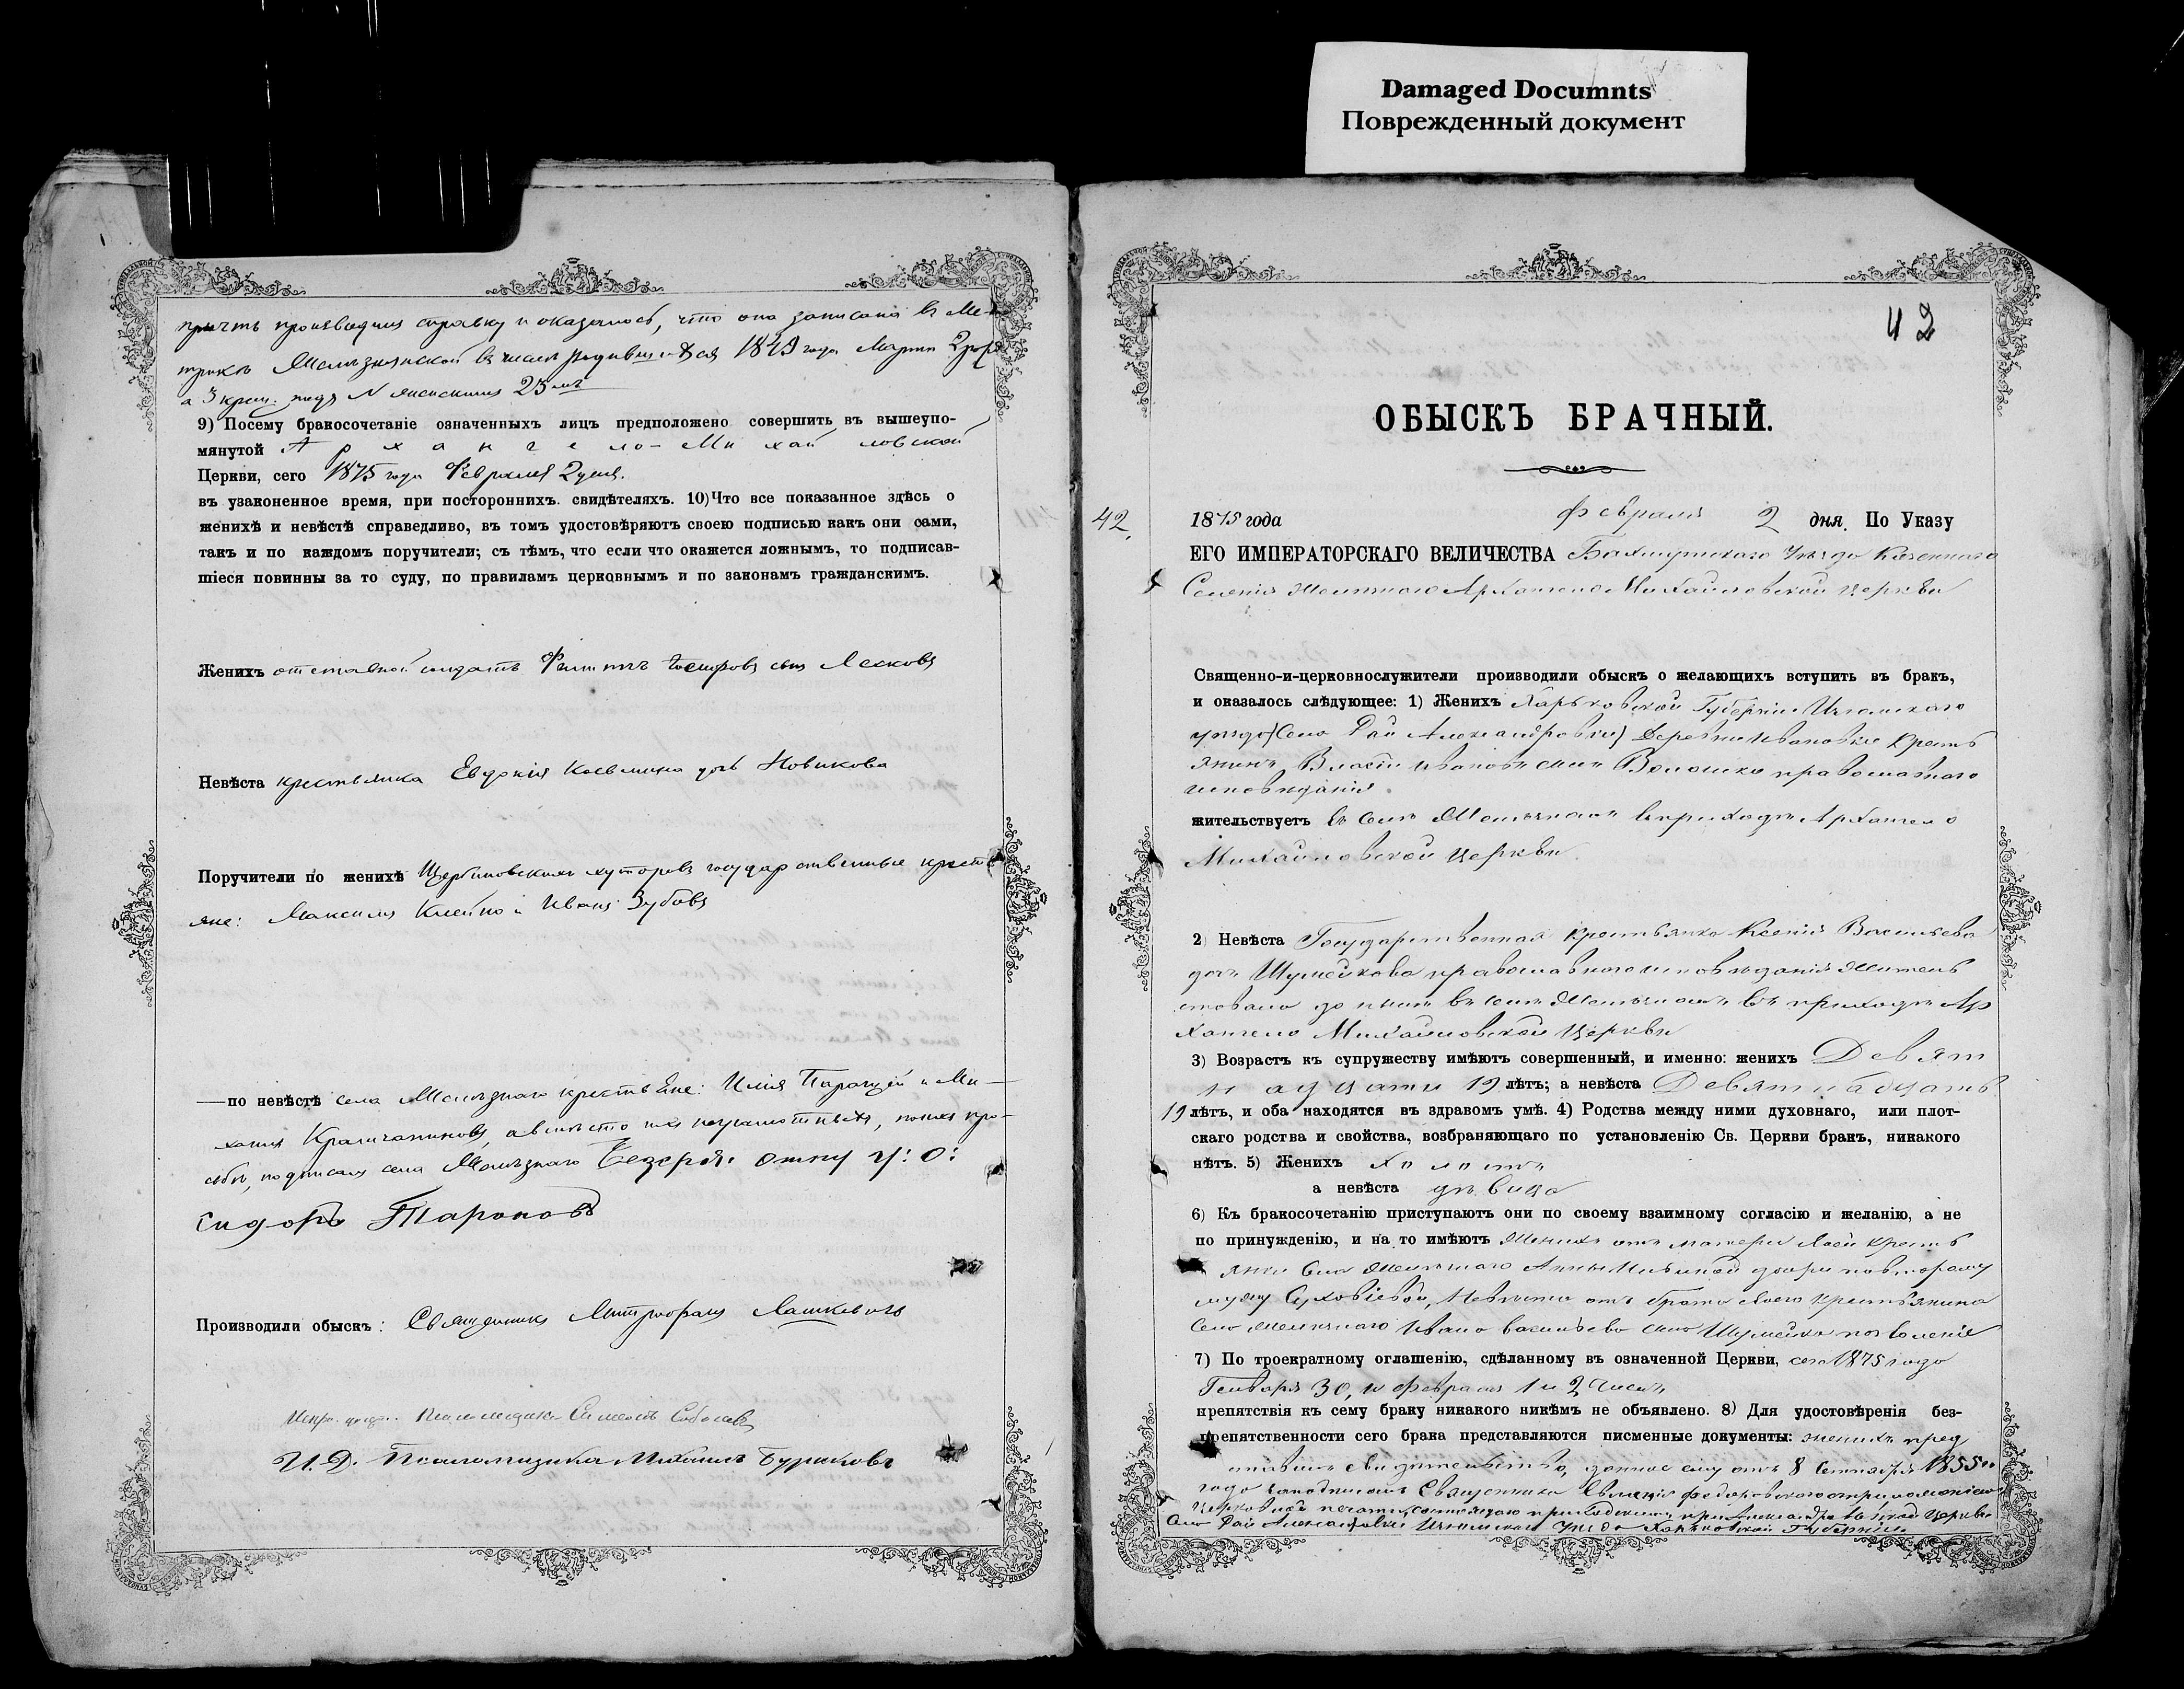 Damaged Documnts
Поврежденный документ
причтъ производилъ справку и оказалось, что она записана въ Ме-
трикѣ Желѣзнянской въ числѣ родившихся 18 года Марта 2
а 3 крещ. подъ N женскимъ 23мъ
9) Посему бракосочетаніе означенныхъ лицъ предположено совершить въ вышеупо-
мянутой Архангело-Михайловской
Церкви, сего 1875 года Февраля 2 дня.
въ узаконенное время, при постороннихъ. свидѣтеляхъ. 10) Что все показанное здѣсь о
женихѣ и невѣстѣ справедливо, въ томъ удостовѣряютъ своею подписью какъ они сами,
такъ и по каждомъ поручители; съ тѣмъ, что если что окажется ложнымъ, то подписав-
шіеся повинны за то суду, по правиламъ церковнымъ и по законамъ гражданскимъ.
Женихъ отставной солдатъ Филиппъ сынъ Лесковъ
Невѣста крестьянка Евдокія Косьмина дочь Новикова
Поручители по женихѣ Щербиновскихъ хуторовъ государственные кресть
яне: Максимъ и Иванъ Зубовъ
—по невѣстѣ села Желѣзнаго крестьяне: Илія и Ми—
хаилъ а вмѣсто ихъ неграмотныхъ, по ихъ про-
сьбѣ, подписалъ села Желѣзнаго
Сидоръ Тарановъ
Производили обыскъ: Священникъ Митрофанъ Лашкевичъ
Псаломщика Соболевъ
И. Д. Псаломщика Михаилъ Буряковъ
42
ОБЫСКЪ БРАЧНЫЙ.
42. 1875 года Февраля 2 дня. По Указу
ЕГО ИМПЕРАТОРСКАГО ВЕЛИЧЕСТВА Бахмутскаго Уѣзда Казеннаго
Селенія Желѣзнаго Архангело Михайловской церкви
Священно-и-церковнослужители производили обыскъ о желающихъ вступить въ бракъ,
и оказалось слѣдующее: 1) Женихъ Харьковской Губерніи Изюмскаго
уѣзда (Села Рай Александровки) Деревни Ивановки Кресть
янинъ Власій Ивановъ сынъ Волошко православнаго
исповѣданія.
жительствуетъ въ селѣ Желѣзномъ въ приходѣ Архангело
Михайловской церкви.
2) Невѣста Государственная крестьянка Ксенія Васильева
дочь Шумейкова православнаго исповѣданія жительст
ствовала до нынѣ въ селѣ Желѣзномъ въ приходѣ Ар
хангело Михайловской церкви
3) Возрастъ къ супружеству имѣютъ совершенный, и именно: женихъ Девят
надцати 19 лѣтъ; а невѣста Девятнадцать
19 лѣтъ, и оба находятся въ здравомъ умѣ. 4) Родства между ними духовнаго, или плот-
скаго родства и свойства, возбраняющаго по установленію Св. Церкви бракъ, никакого
нѣтъ. 5) Женихъ холостъ
а невѣста дѣвица
6) Къ бракосочетанію приступаютъ они по своему взаимному согласію и желанію, а не
по принужденію, и на то имѣютъ Женихъ отъ матери своей кресть
янки села Желѣзнаго Анны Ильиной дочери по второму
мужу Суховіевой, Невѣста отъ брата своего крестьянина
села Желѣзнаго Ивана Васильева сына Шумейка позволеніе
7) По троекратному оглашенію, сдѣланному въ означенной Церкви, сего 1875 года
Генваря 30, и Февраля 1 и 2 чиселъ
препятствія къ сему браку никакого никѣмъ не объявлено. 8) Для удостовѣренія без-
препятственности сего брака представляются писменные документы: женихъ пред
ставилъ свидетельство, данное ему отъ 8 Сентября 1855
года за подписомъ Священника Федоровскаго съ приложеніемъ
церковной печати,
Села Рай Александровки Изюмскаго Уѣзда Харьковской Губерніи